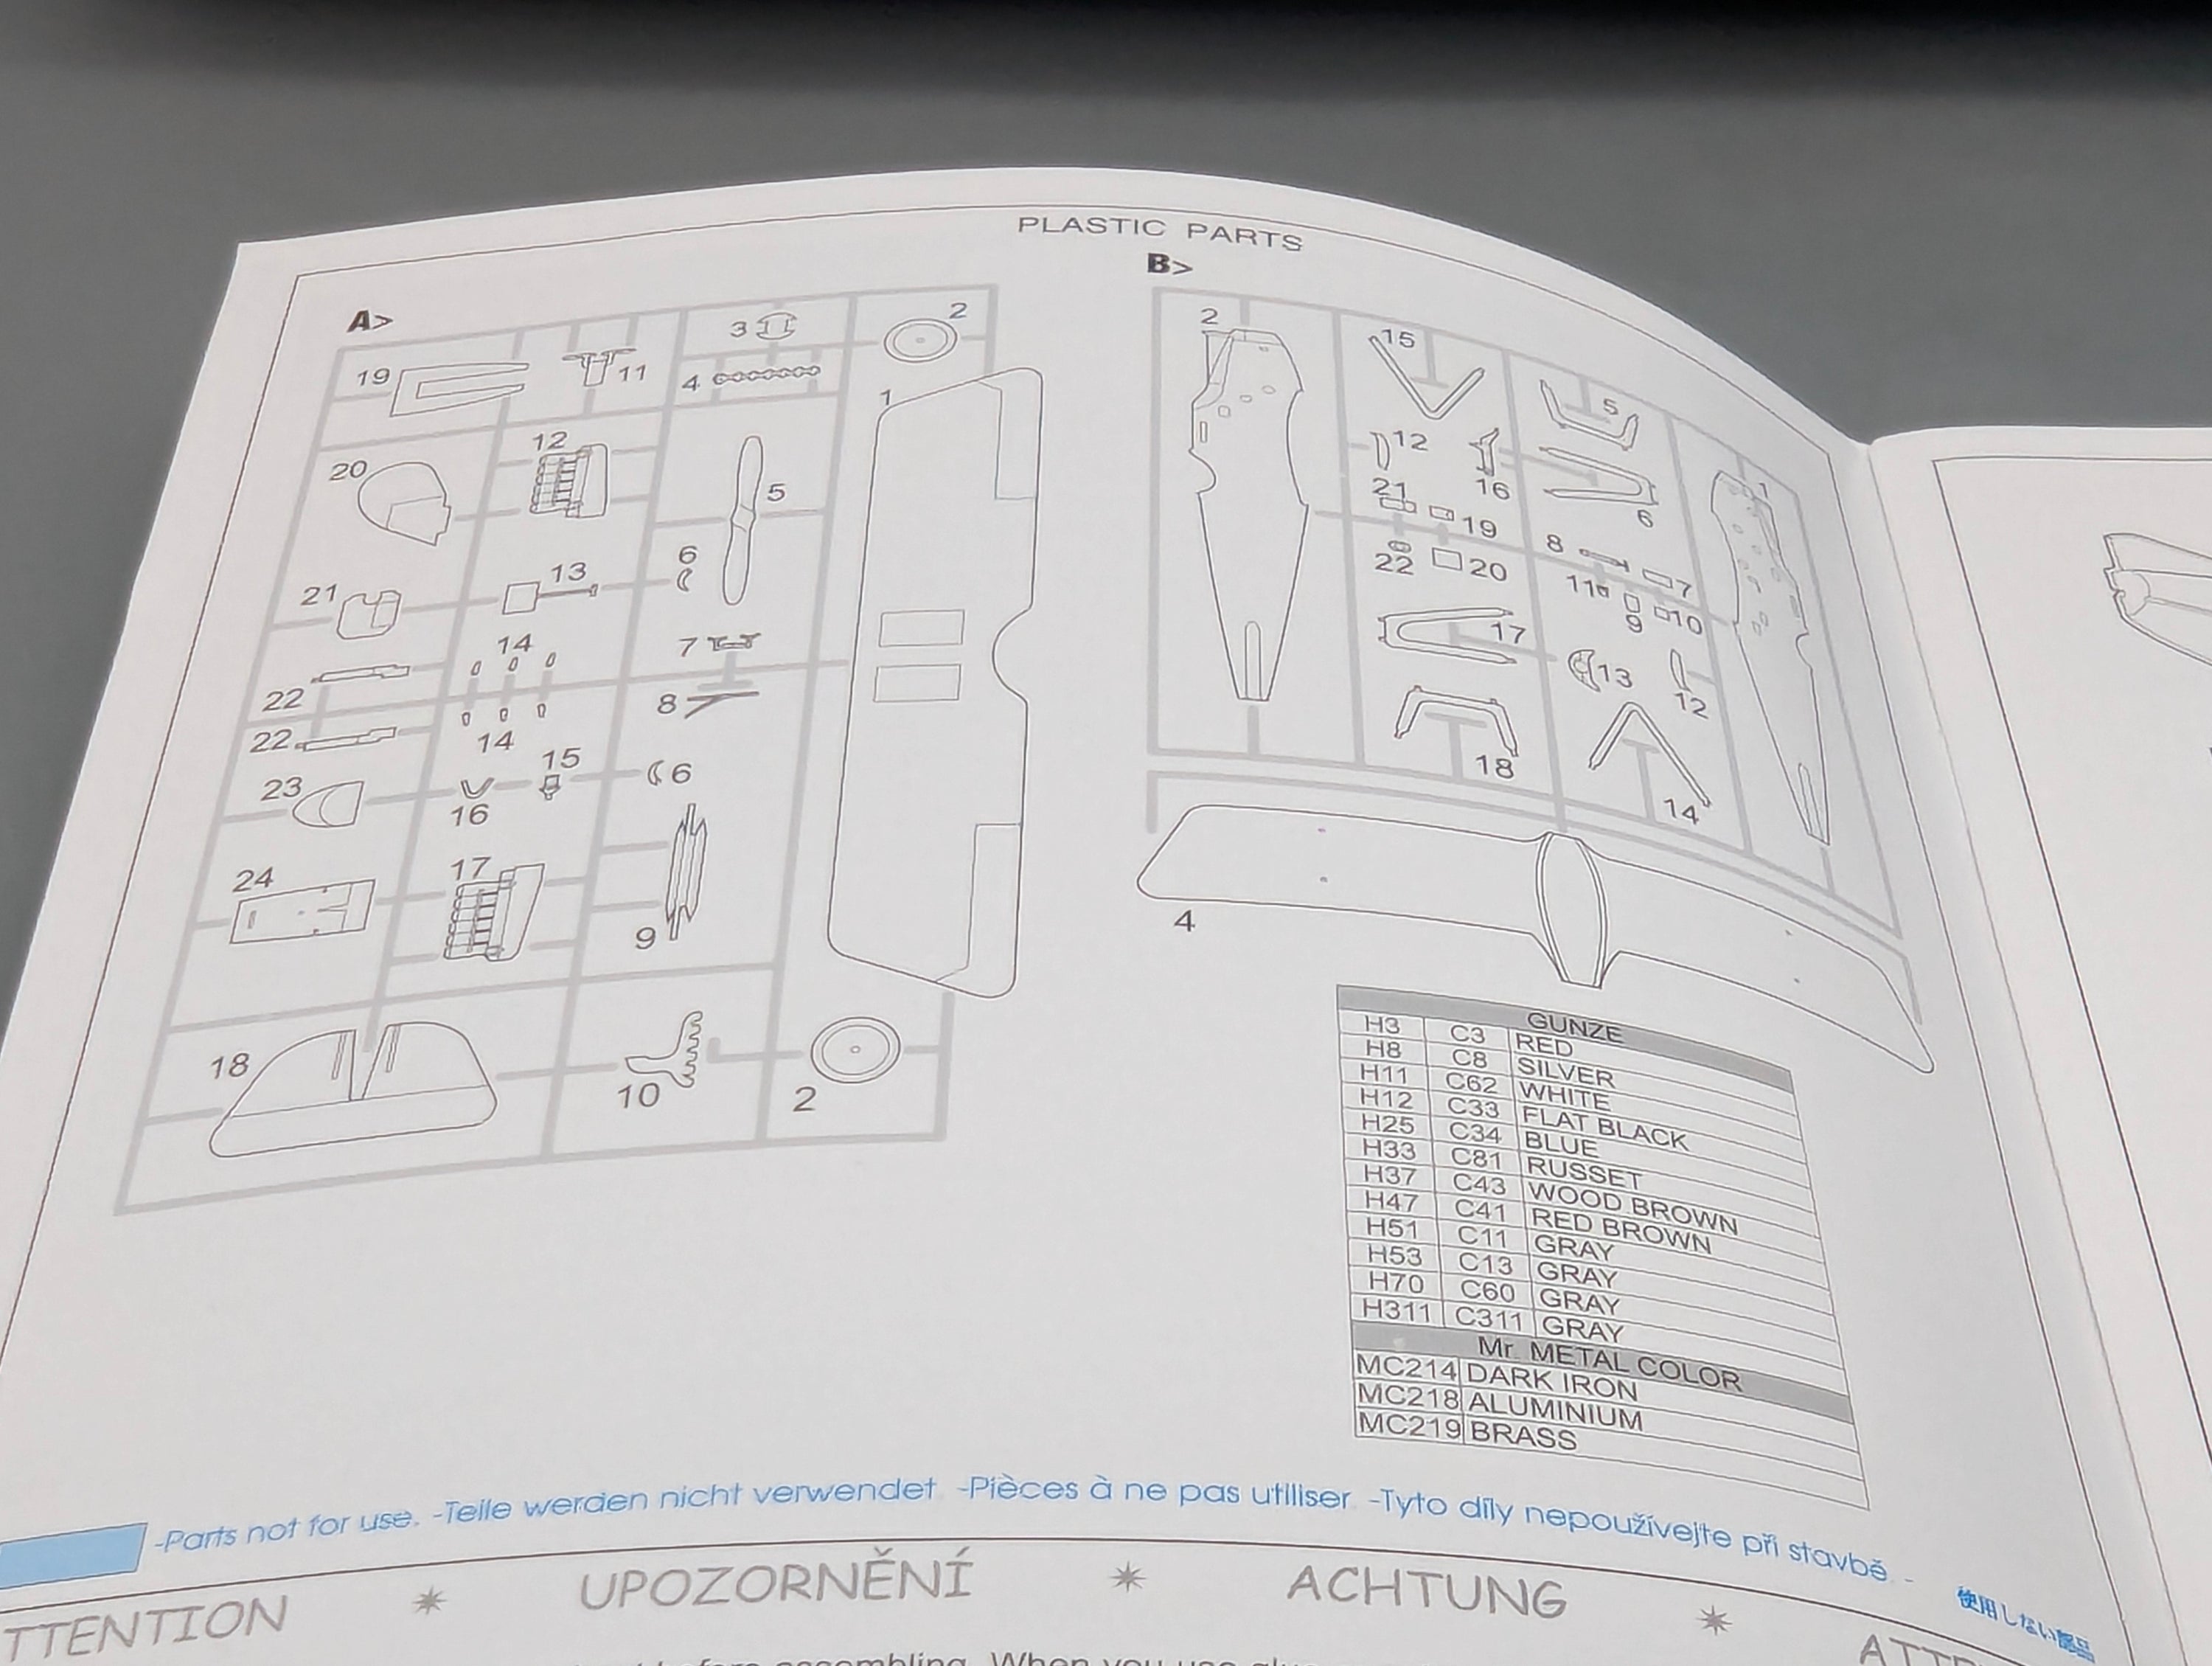 PLASTIC PARTS
A>
19
11
3
4
2
1
20
12
5
6
21
13
14
7
22
8
22
14
23
16
15
6
24
17
9
18
10
2
B>
2
15
5
1
12
16
6
21
19
8
7
22
20
11
9
10
17
13
12
18
14
4
GUNZE
H3 C3 RED
H8 C8 SILVER
H11 C62 WHITE
H12 C33 FLAT BLACK
H25 C34 BLUE
H33 C81 RUSSET
H37 C43 WOOD BROWN
H47 C41 RED BROWN
H51 C11 GRAY
H53 C13 GRAY
H70 C60 GRAY
H311 C311 GRAY
Mr. METAL COLOR
MC214 DARK IRON
MC218 ALUMINIUM
MC219 BRASS
-Parts not for use. -Teile werden nicht verwendet. -Pièces à ne pas utiliser. -Tyto díly nepoužívejte při stavbě. - 使用しない部品
TTENTION * UPOZORNĚNÍ * ACHTUNG * ATT
before assembling. When you use